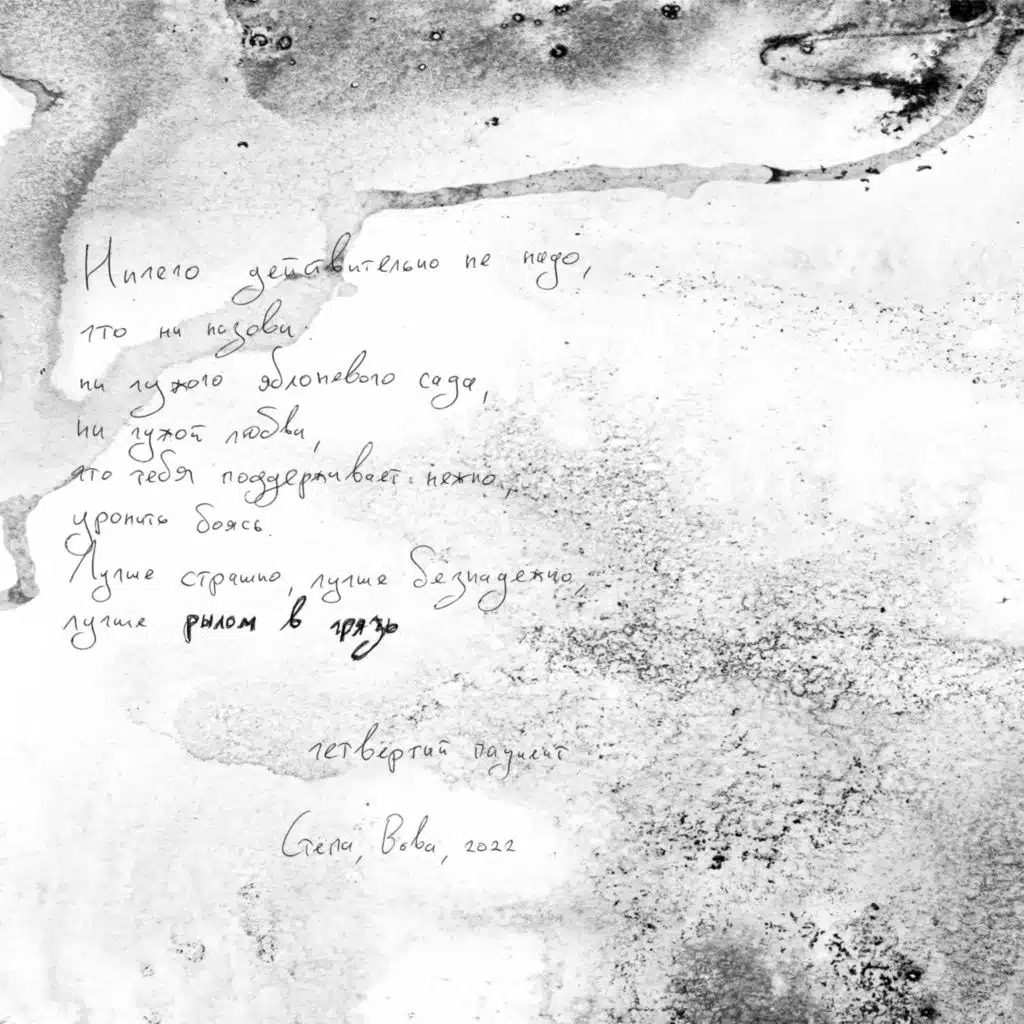 Ничего действительно не надо,
что ни назови
ни чужого яблоневого сада,
ни чужой любви,
что тебя поддерживает нежно,
уронить боясь.
Лучше страшно, лучше безнадежно,
лучше рылом в грязь
четвёртый пациент
Стёпа, Вова, 2022